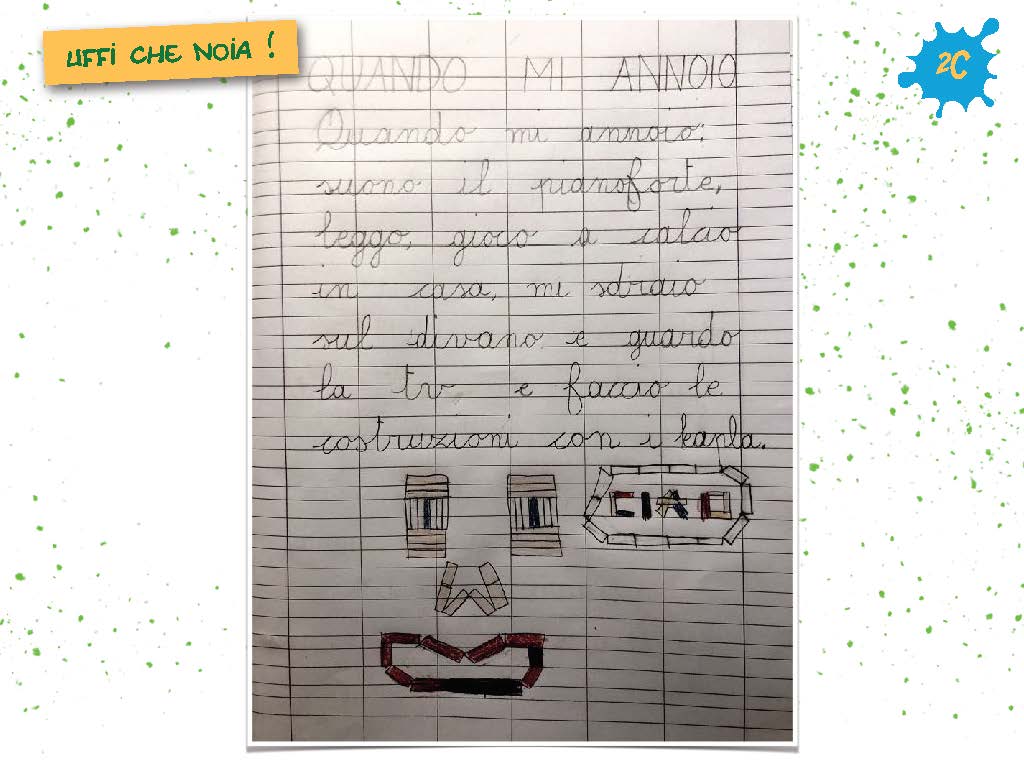 UFFI CHE NOIA !
2C
QUANDO MI ANNOIO
Quando mi annoio:
suono il pianoforte,
leggo, gioco a calcio
in casa, mi sdraio
sul divano e guardo
la tv e faccio le
costruzioni con i kapla.
CIAO